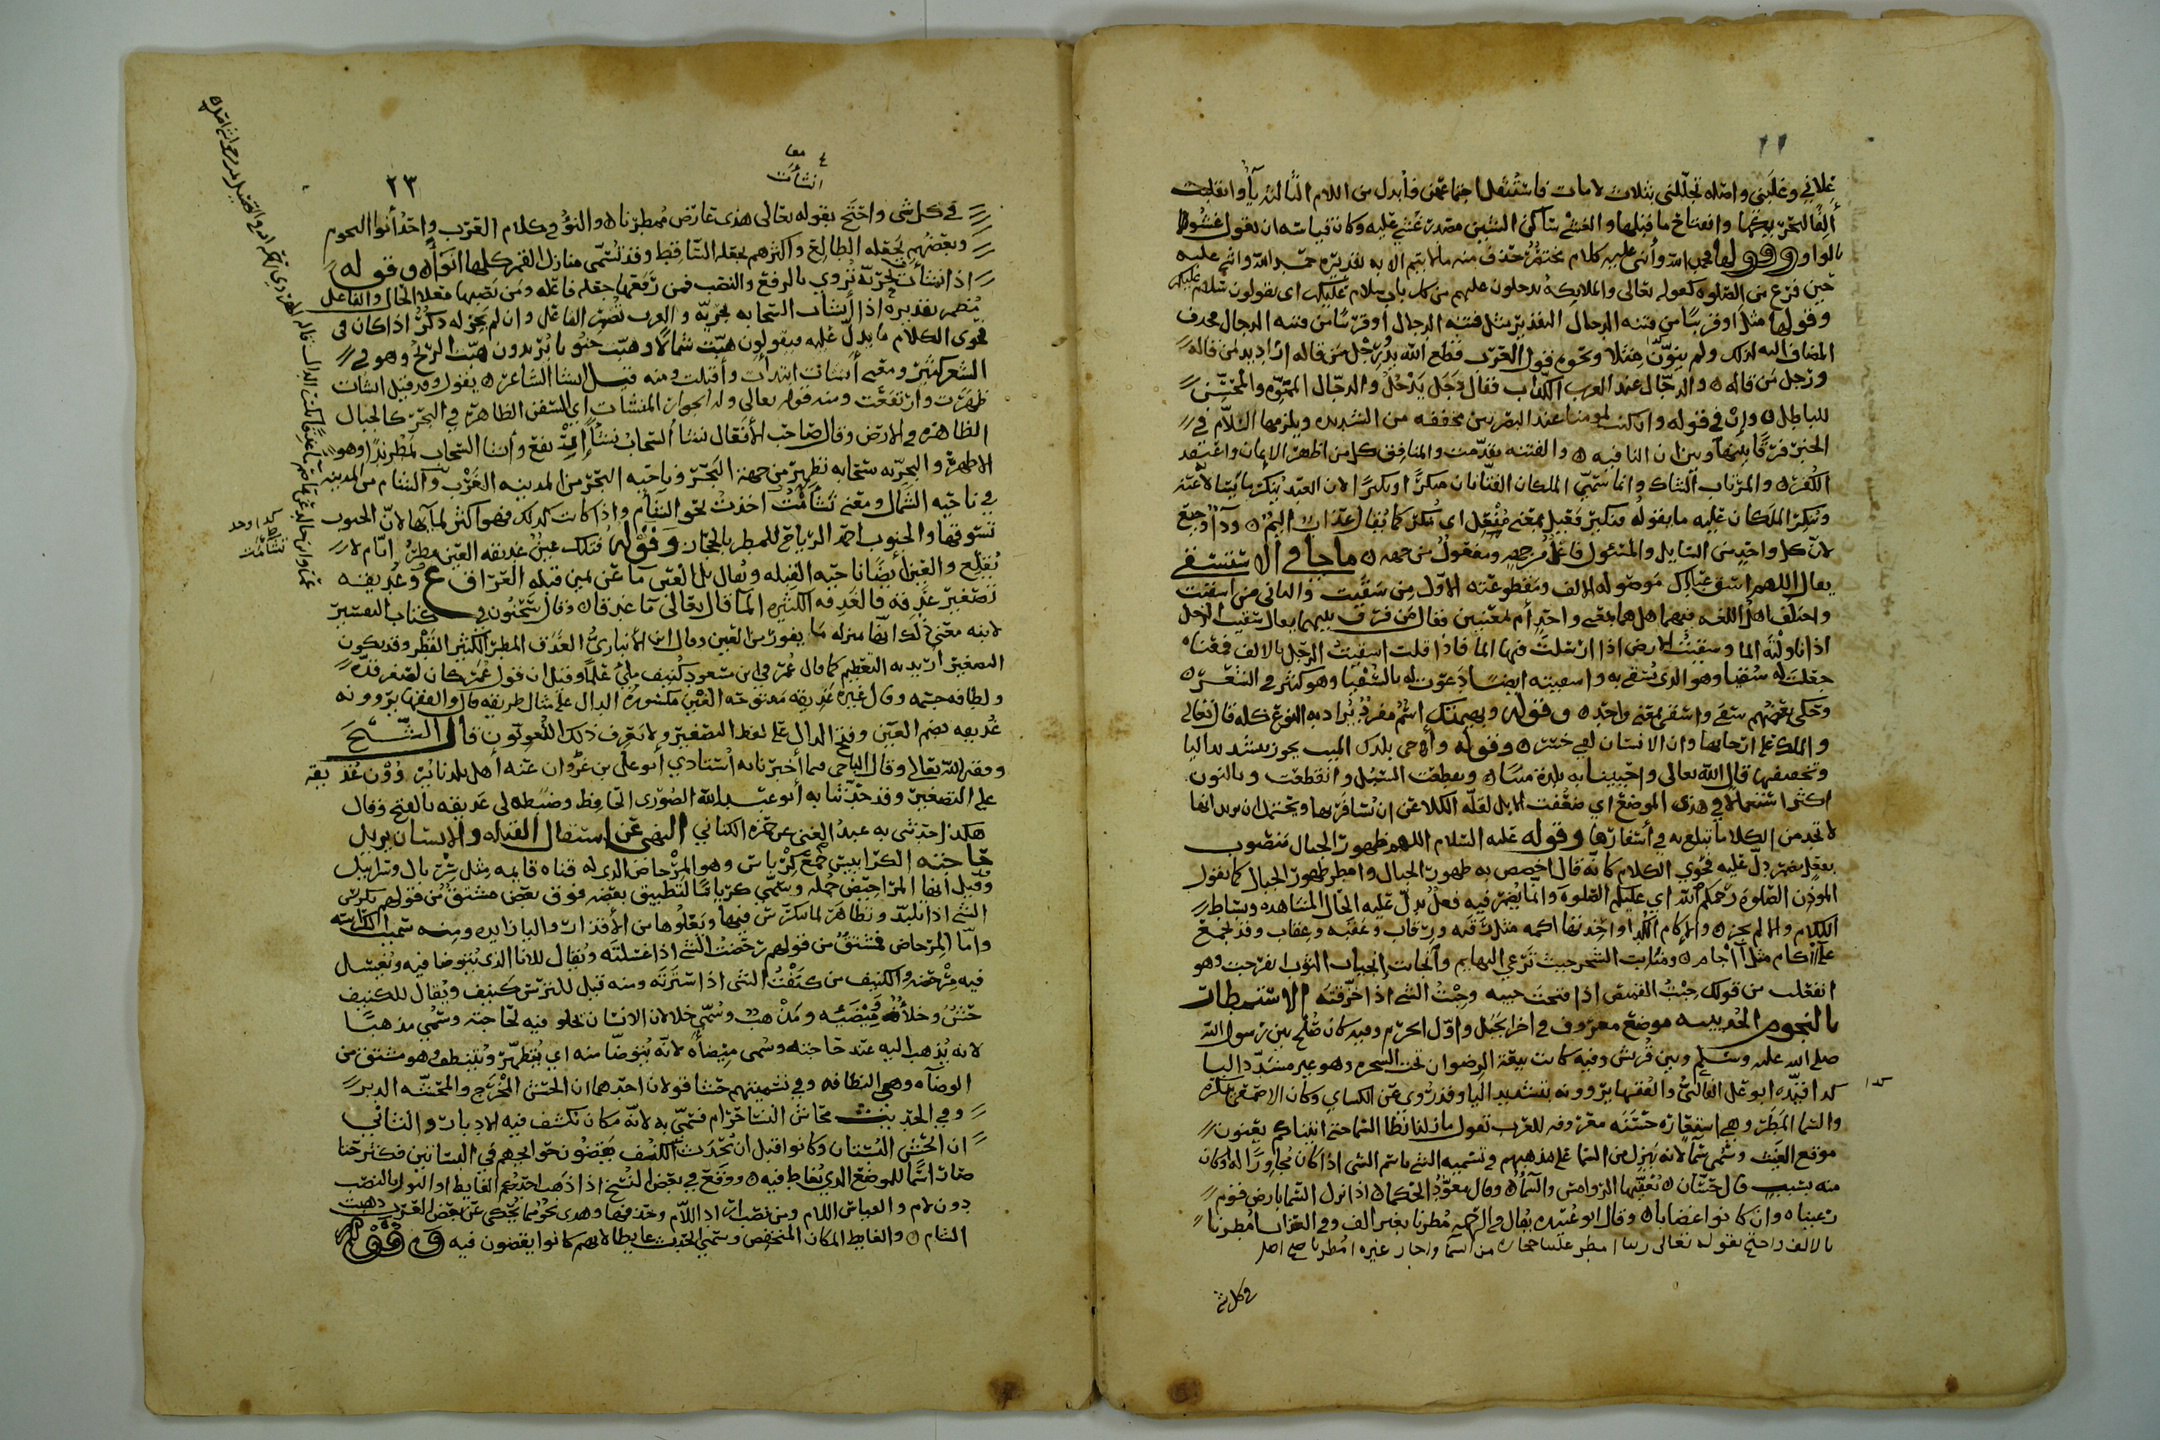 علاني وغلبني واصله تجللني بثلاث لامات فاستثقل اجتماعهن فأبدل من اللام الثالثة يا وانقلبت
ألفا لتحركها وانفتاح ما قبلها والغشي ساكن الشين مصدر غشي عليه وكان قياسه ان يقول غشوا
بالواو وقولها فحمد الله وأثنى عليه كلام مختصر حذف منه ما لا يتم الا به تقديره حمد الله واثنى عليه
حين فرغ من الصلوة كقوله تعالى والملايكة يدخلون عليهم من كل باب سلام عليكم اى يقولون سلام عليكم
وقولها مثل او قريبا من فتنة الدجال التقدير مثل فتنة الدجال أو قريبا من فتنة الدجال فحذف
المضاف اليه لذلك ولم ينون مثلا ونحوه قول العرب قطع الله يد ورجل من قاله اراد يد من قاله
ورجل من قاله والدجال عند العرب الكذاب فقال دجل يدجل والدجال المموه والمحسن
للباطل وإن في قوله وان كنت لمومنا عند البصريين مخففة من الشديدة ويلزمها اللام في
الخبر فرقا بينها وبين ان النافية والفتنة تقدمت والمنافق كل من اظهر الإيمان واعتقد
الكفر والمرتاب الشاك وانما سمي الملكان الفتانان منكرا ونكيرا لان العبد ينكر
ونكير الملكان عليه ما يقوله فنكير فعيل بمعنى مفعل اى منكر كما يقال عذاب اليم
لان كل واحد من السايل والمسئول فاعل من جهة ومفعول من جهة ما جا في الاستسقى
يقال اللهم اسق عبادك موصولة الالف ومقطوعته الاول من سقيت والثاني من اسقيت
واختلف اهل اللغة فيهما هل هما بمعنى واحد أم لمعنيين فقال من فرق بينهما يقال سقيت الرجل
اذا ناولته الما وسقيت الارض اذا ارسلت فيها الما فاذا قلت اسقيت الرجل بالالف فمعناه
جعلت له سقيا وهو الذي يستقى به واسقيته ايضا دعوت له بالسقيا وهو كثير في الشعر
وحكى بعضهم سقى واسقى بمعنى واحد وقوله وبهيمتك اسم مفرد يراد به النوع كله قال تعالى
والملك على ارجايها وان الانسان لفي خسر وقوله وأحى بلدك الميت يجوز بتشديد اليا
وتخفيفها قال الله تعالى واحيينا به بلدة ميتا وتقطعت السبل وانقطعت وبالنون
اكثر استعمالا في هذى الموضع اي ضعفت الابل لقلة الكلا عن ان يسافر بها ويحتمل ان يريد انها
لا تجد من الكلا ما تبلغ به في أسفارها وقوله عليه السلام اللهم ظهور الجبال منصوب
بفعل مضمر دل عليه فحوى الكلام كانه قال اخصص به ظهور الجبال وامطر ظهور الجبال كما يقول
الموذن الصلوة رحمكم الله اي عليكم الصلوة وانما يضمر فيه فعل يدل عليه الحال المشاهدة وبساط
الكلام والاكام الكدا واحدتها اكمة مثل رقبة ورقاب وعقبة وعقاب وقد تجمع
على آكام مثل آجام ومنابت الشجر حيث ترعى البهايم وانجابت انجياب الثوب انفرجت وهو
انفعلت من قولك جبت القميص اذا فتحت جيبه وجبت الشى اذا خرقته الاستمطار
بالنجوم الحديبية موضع معروف في اخر الحل واول الحرم وفيه كان صلح بين رسول الله
صلى الله عليه وسلم وبين قريش وفيه كانت بيعة الرضوان تحت الشجرة وهو غير مشدد اليا
كذا قيده ابو علي القالي والفقها يروونه بتشديد اليا وقد روى عن الكساي وكان الاصمعي ينكره
والسما المطر وهي استعارة حسنة معروفة للعرب تقول ما زلنا نطا السما حتى اتيناكم يعنون
موقع الغيث وسمي سما لانه ينزل من السما على مذهبهم في تسمية الشى باسم الشى اذا كان مجاورا له او كان
منه بسبب قال حسان تعفيها الروامس والسما وقال معود الحكما اذا نزل السما بارض قوم
رعيناه وان كانوا غضابا وقال ابو عبيدة يقال في الرحمة مطرنا بغير الف وفي العذاب امطرنا
بالالف واحتج بقوله تعالى ربنا امطر علينا حجارة من السما واجاز غيره امطرنا
في كل شى
كذا
٢٣
معا
انشأت
في كل شى واحتج بقوله تعالى هذى عارض ممطرنا والنؤ في كلام العرب واحد أنوا النجوم
وبعضهم يجعله الطالع واكثرهم يجعله الساقط وقد تسمى منازل القمر كلها انوا وقوله
اذا انشأت بحرية تروى بالرفع والنصب فمن رفعها جعله فاعله ومن نصبها فعلى الحال والفاعل
مضمر تقديره اذا أنشات السحابة بحرية والعرب تضمر الفاعل وان لم يجز له ذكر اذا كان في
فحوى الكلام ما يدل عليه فيقولون هبت شمالا وهبت جنوبا يريدون هبت الريح وهو في
الشعر كثير ومعنى أنشات ابتدات وأقبلت ومنه قيل انشا الشاعر يقول وقد قيل انشات
ظهرت وارتفعت ومنه قوله تعالى وله الجوار المنشات اي السفن الظاهرة في البحر كالجبال
الظاهرة في الارض وقال صاحب الأفعال نشا السحاب نشأ ارتفع وأنشا السحاب بمطر بدا وهو
الاظهر والبحرية سحابة تظهر من جهة البحر وناحية البحر من المدينة الغرب والشام من المدينة
في ناحية الشمال ومعنى تشآمت اخذت نحو الشام واذا كانت كذلك فهو اكثر لمايها لان الجنوب
تسوقها والجنوب احمد الرياح للمطر بالحجاز وقوله فتلك عين غديقة العين مطر ايام لا
يقلع والعين أيضا ناحية القبلة ويقال بل العين ما عن يمين قبلة العراق ع وغديقة
تصغير غدقة فالغدقة الكثيرة الما قال تعالى ما غدقا وقال سحنون في كتاب التفسير
لابنه معنى ذلك انها بمنزلة ما يفور من العين وقال ابن الأنباري الغدق المطر الكثير القطر وقد يكون
التصغير اريد به التعظيم كما قال عمر في ابن مسعود كنيف ملئ علما وقيل ان قول عمر كان لصغر قده
ولطافة جسمه وقال غيره غديقة مفتوحة الغين مكسورة الدال على مثال طريقة قال والفقها يروونه
غديقه بضم العين وفتح الدال على لفظ التصغير ولا يعرف ذلك اللغويون قال الشيخ
وفقه الله تعالى وقال الباجي فيما أخبرنا به استاذي أبو علي بن غزوان عنه أهل بلدنا يروون غديقة
على التصغير وقد حدثنا به أبو عبد الله الصوري الحافظ وضبطه لى غديقة بالفتح وقال
هكذا حدثنى به عبد الغنى عن حمزة الكناني النهى عن استقبال القبلة والانسان يريد
حاجته الكرابيس جمع كرياس وهو المرحاض الذى له قناة قايمة مثل شربال وسرابيل
وقيل انها المراحيض جملة وسمي كرياسا لتطبيق بعضه فوق بعض مشتق من قولهم تكرس
الشى اذا تلبد وتظاهر لما يتكرس فيها ويعلوها من الأقذار واليا زايده ومنه سميت الكراسة
وأما المرحاض فمشتق من قولهم رحضت الشى اذا غسلته ويقال للانا الذى يتوضا فيه ويغسل
فيه مرحضه والكنيف من كنفت الشى اذا سترته ومنه قيل للترس كنيف ويقال للكنيف
حش وخلاء وميضئه ومذهب وسمي خلا لان الانسان يخلو فيه لحاجته وسمي مذهبا
لانه يذهب اليه عند حاجته وسمى ميضأه لانه يتوضا منه اي يتطهر ويتنظف وهو مشتق من
الوضاه وهى النظافة وفي تسميتهم حشا قولان احدهما ان الحش المخرج والمحشه الدبر
وفي الحديث محاش النسا حرام فسمي به لانه مكان تكشف فيه الادبار والثاني
ان الحش البستان وكانوا قبل ان تحدث الكنف يقضون حوائجهم في البساتين فكثر حتا
صار اسما للموضع الذى يتغاط فيه ووقع في بعض النسخ اذا ذهب احدكم الغايط او البول بالنصب
دون لام والقياس اللام ومن نصب اراد اللام وحذفها وهذى نحو ما يحكى عن بعض العرب ذهبت
الشام والغايط المكان المنخفض وسمي الحدث غايطا لانهم كانوا يقضون فيه
كذا وجد
تشآمت